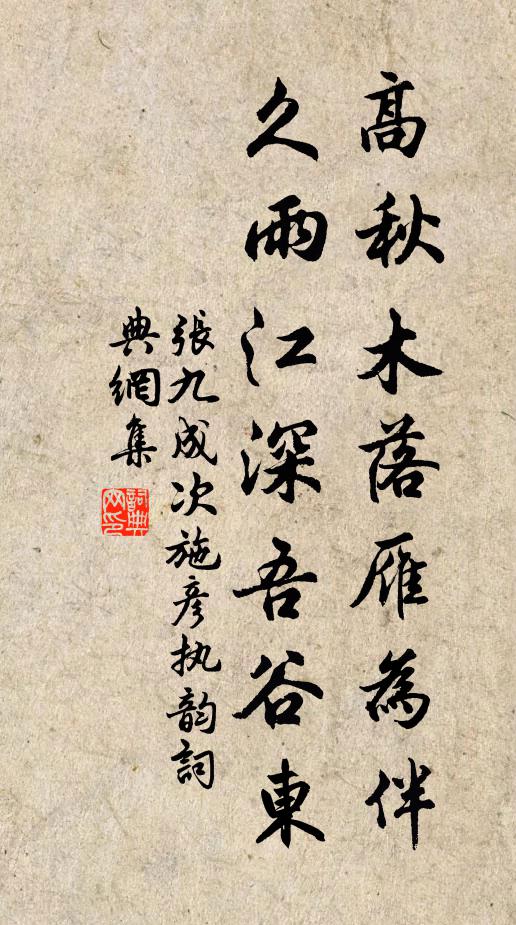 高秋木落雁為伴
久雨江深吾谷東
張九成次施彥执韵詞
典網集
詞典
网印